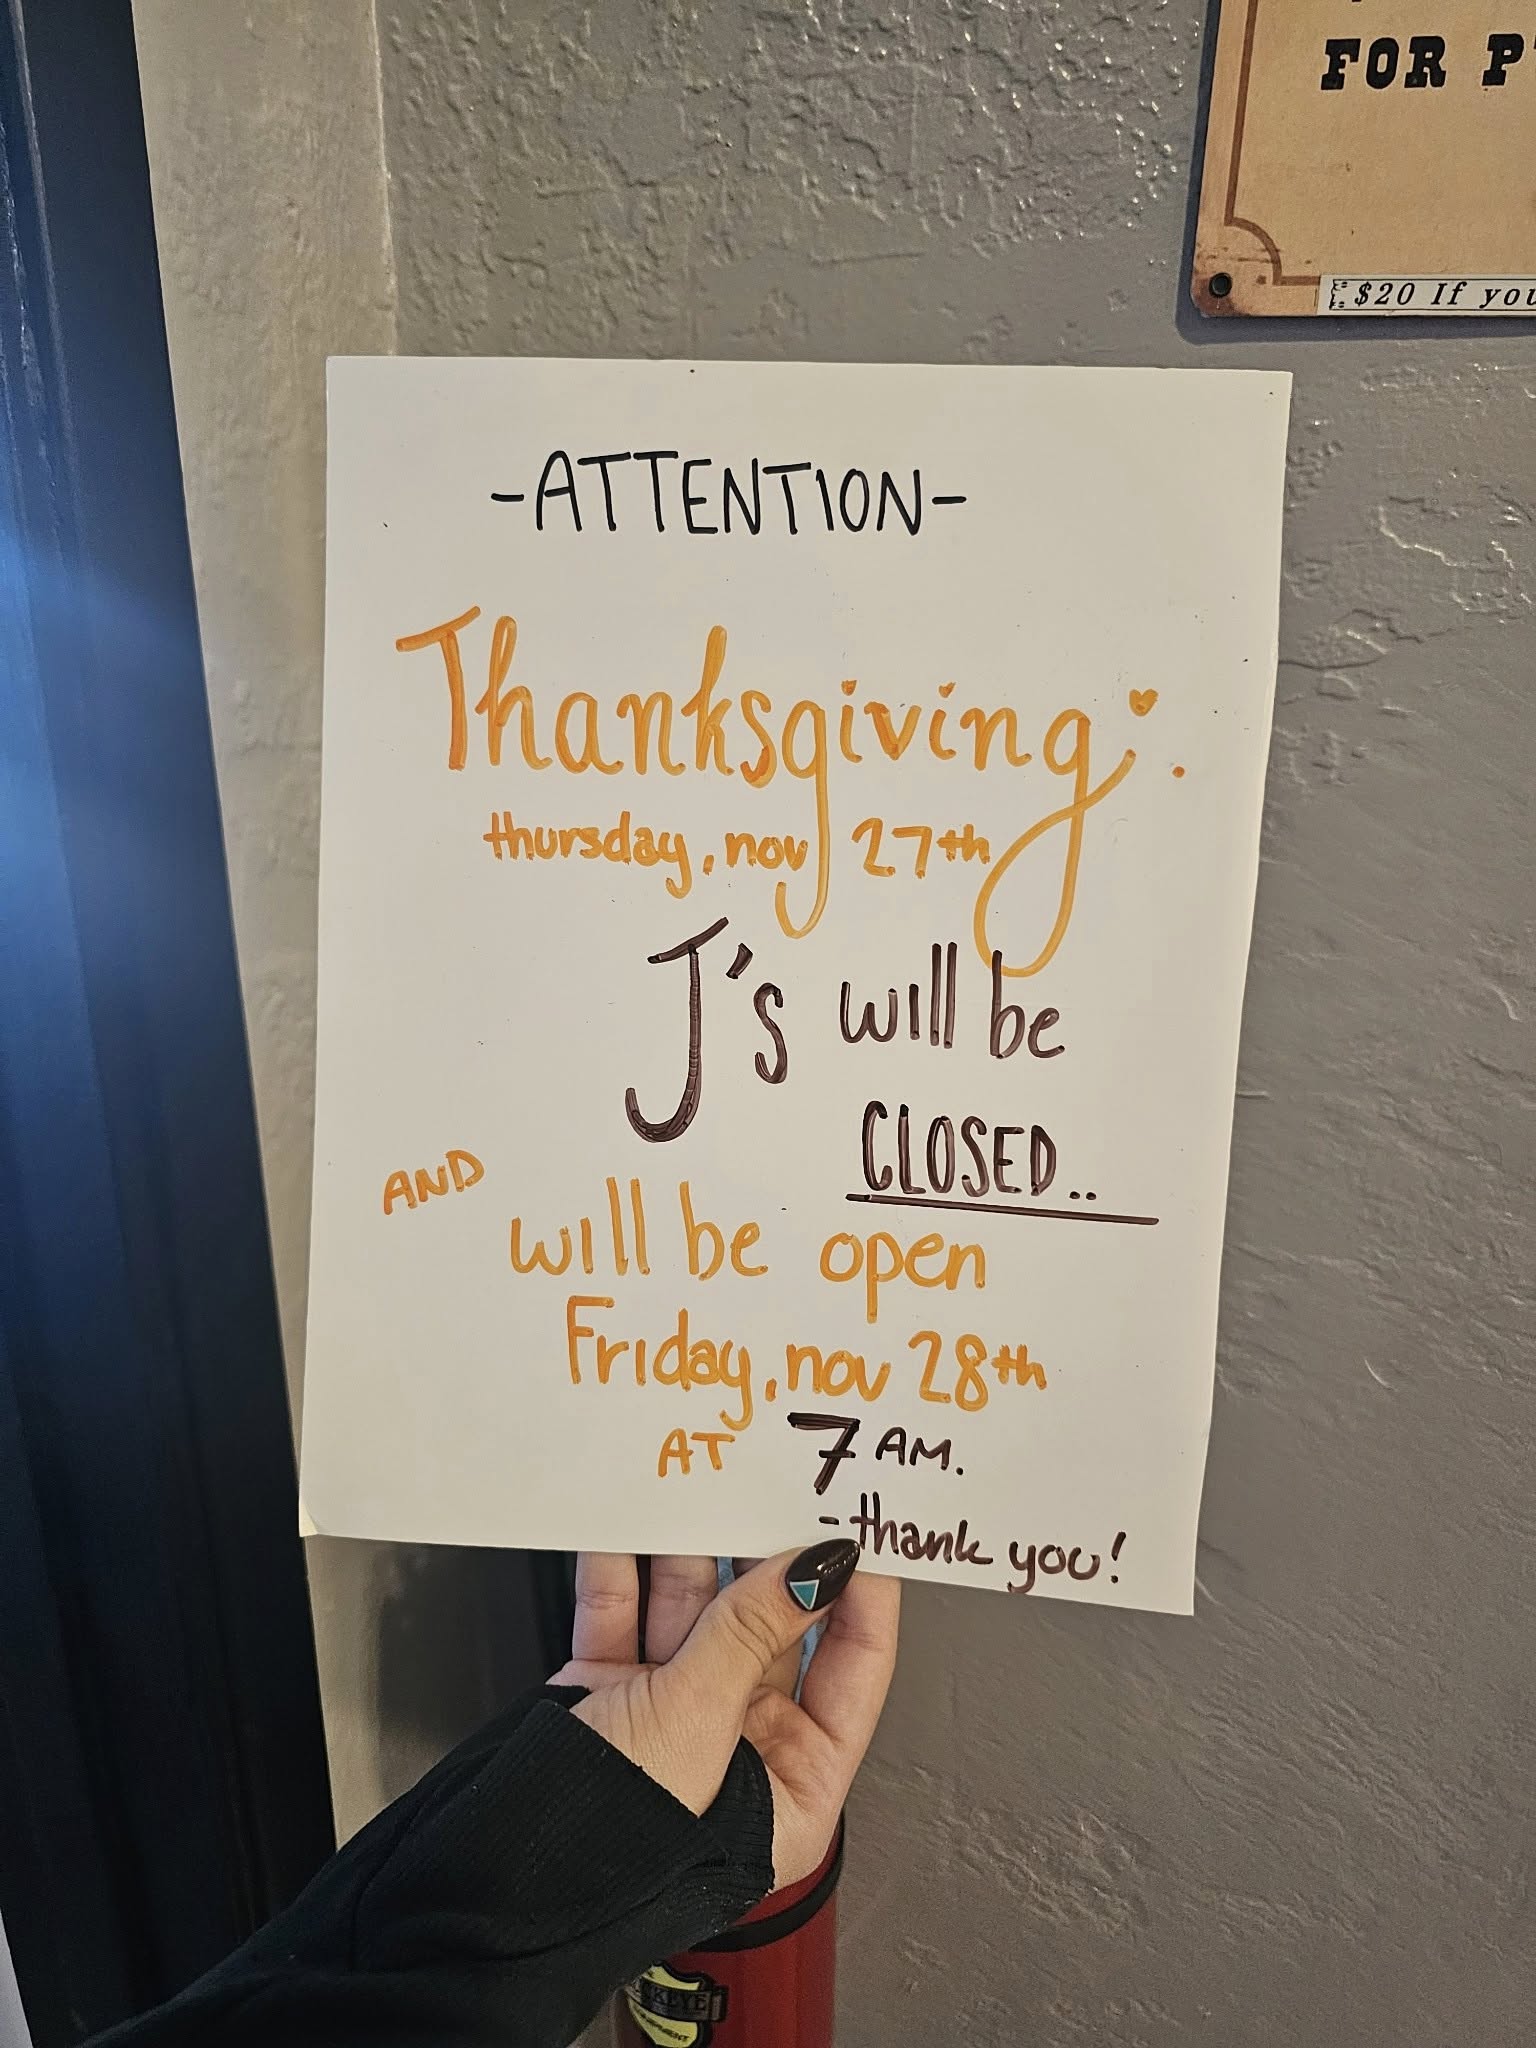 FOR P
$20 If you
-ATTENTION-
Thanksgiving:
thursday, nov 27th
J's will be
CLOSED..
AND
will be open
Friday, nov 28th
AT 7 AM.
-thank you!